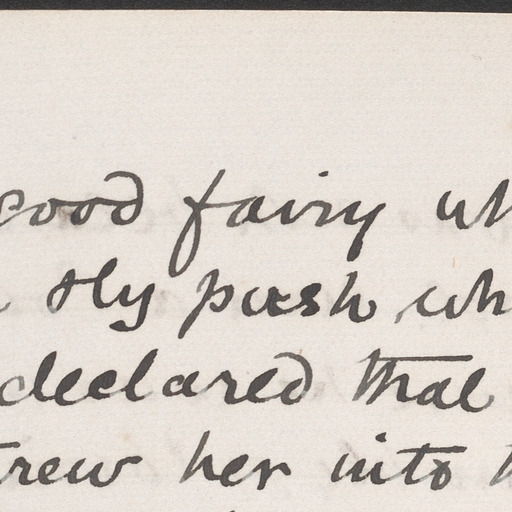 good fairy wh
sly push wh
declared that
rew her into t